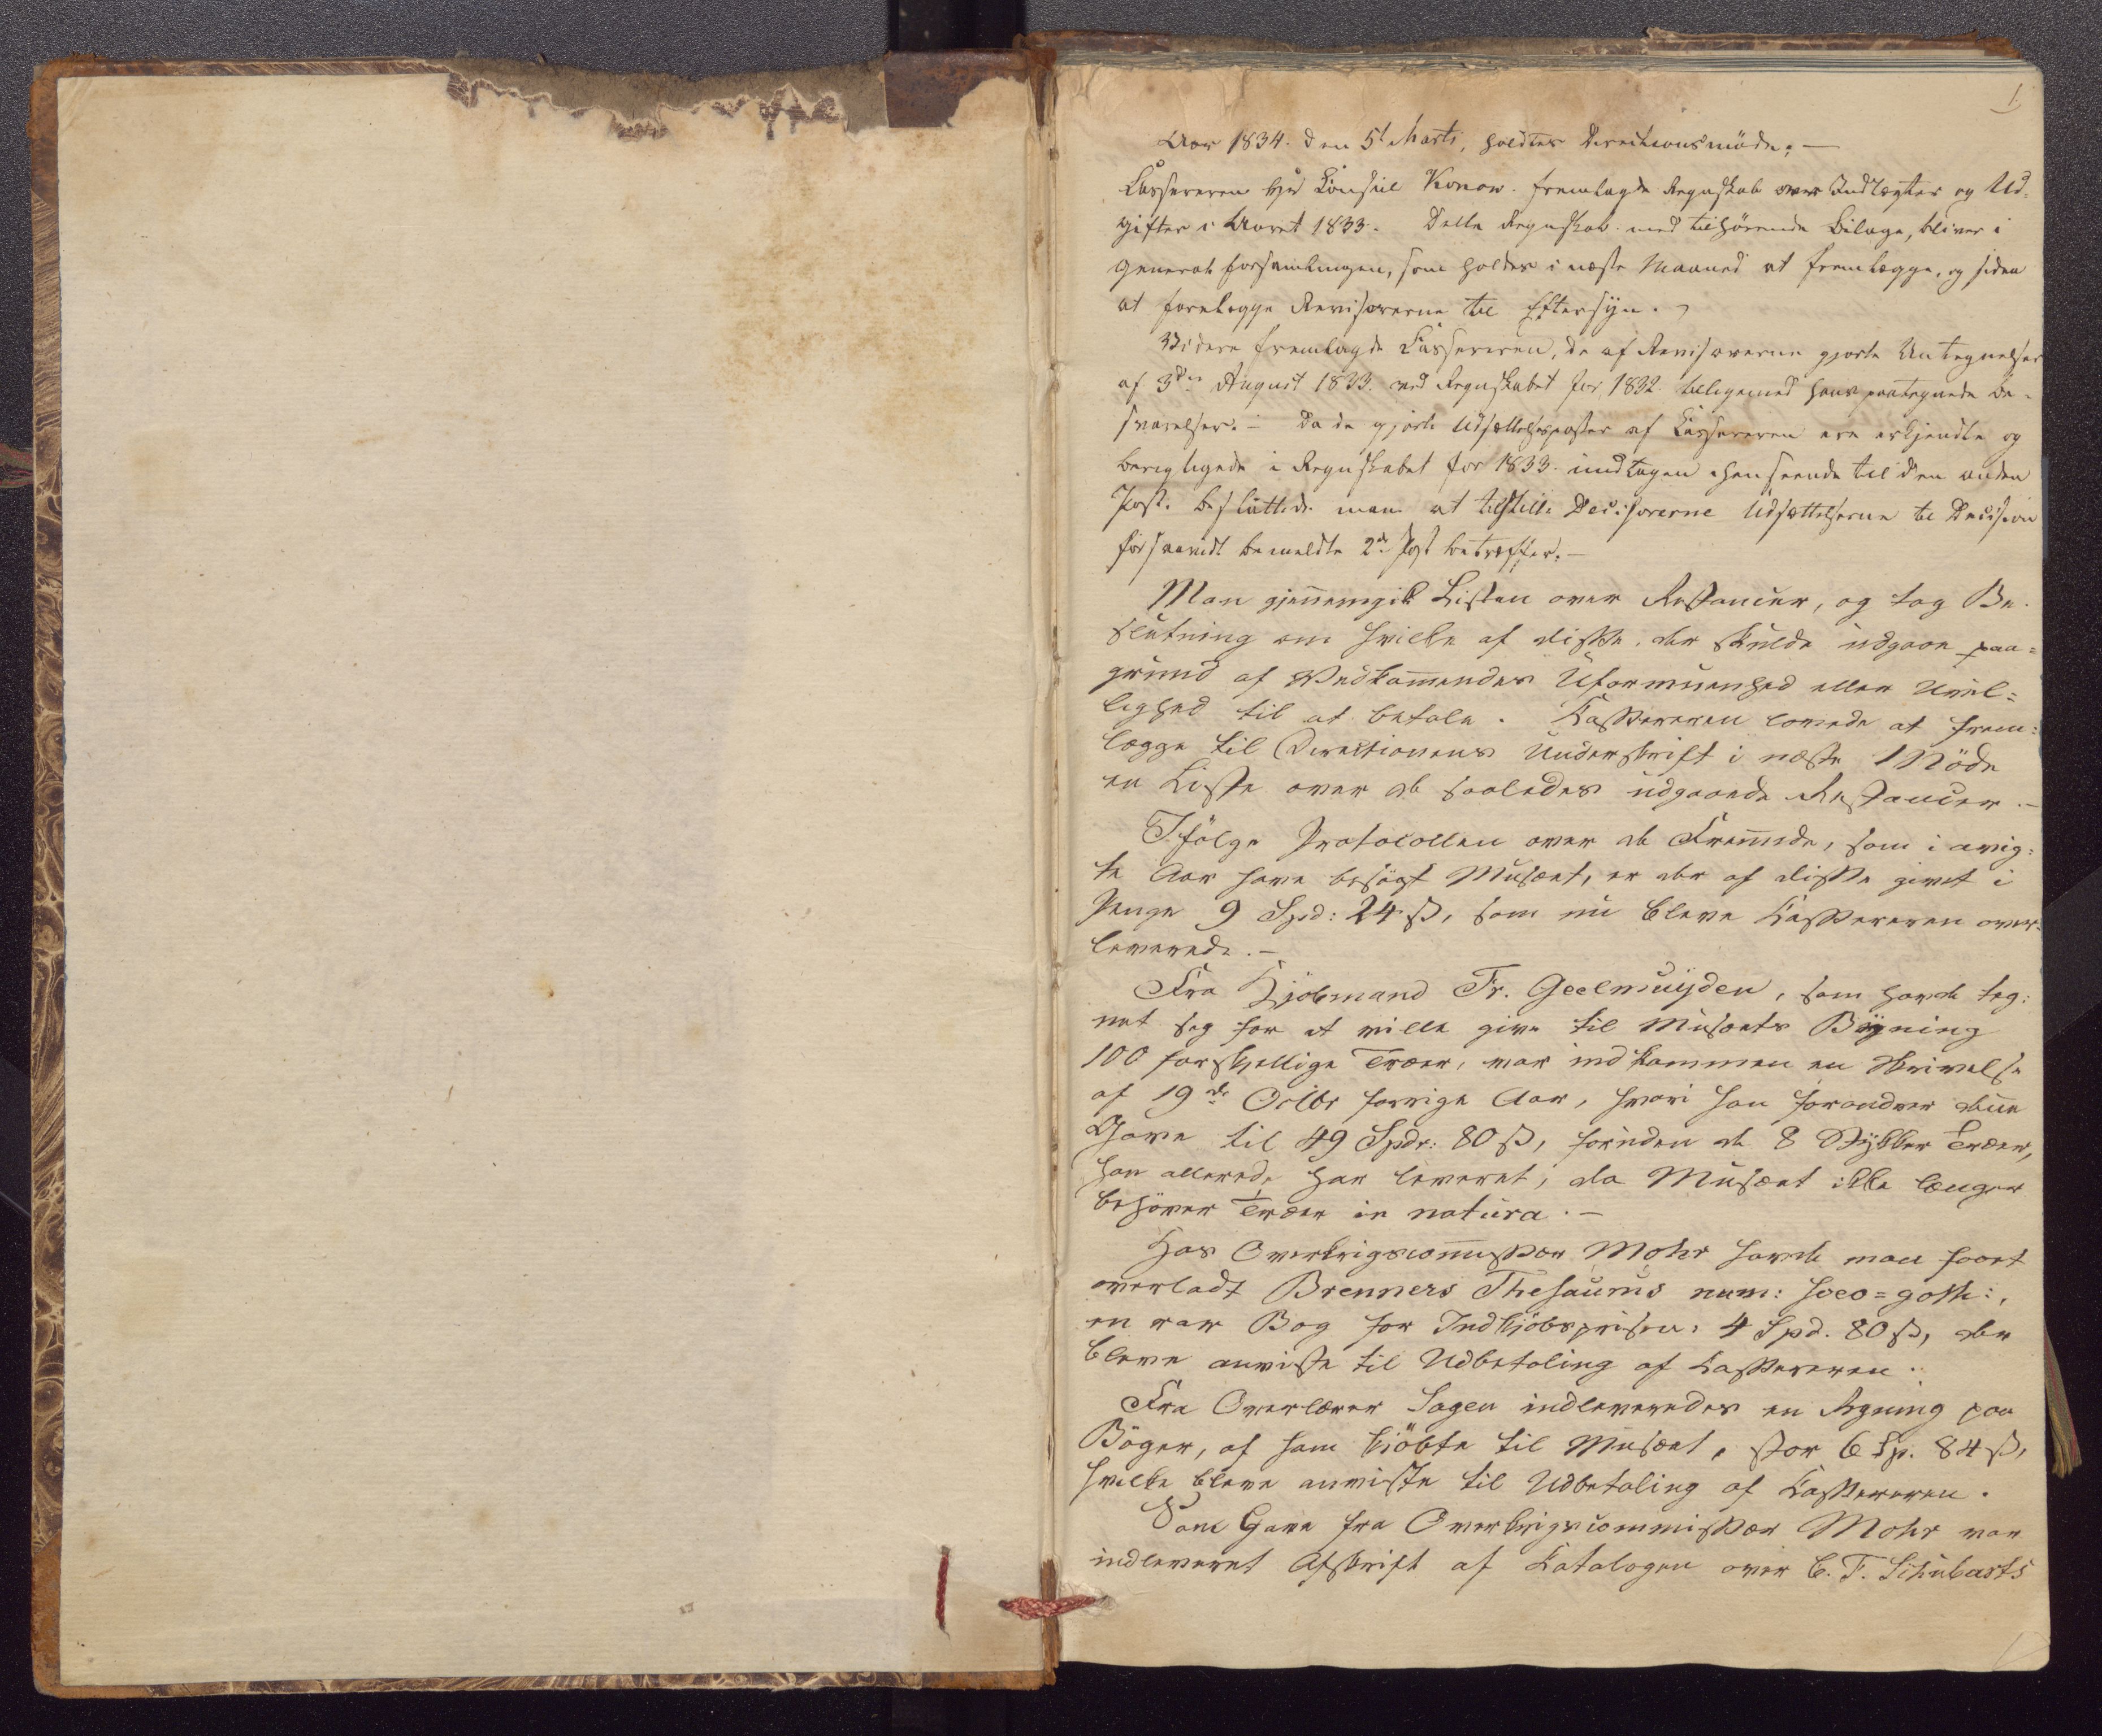 1
Aar 1834. den 5t Marts, holdtes Directionsmöde; —
Kassereren Hr Konsul Konow. fremlagde Regnskab over Indtægter og Ud-
gifter i Aaret 1833. Dette Regnskab med tilhörende Bilage, bliver i
Generalforsamlingen, som holdes i næste Maaned at fremlægge, og siden
at forelægge Revisorerne til Eftersyn.
Videre fremlagde Kassereren, de af Revisorerne gjorte Antegnelser
af 3die August 1833. ved Regnskabet for 1832. tilligemed hans paategnede Be-
svarelser. — Da de gjorte Udsættelsesposter af Kassereren ere erkjendte og
berigtigede i Regnskabet for 1833. undtagen henseende til den anden
Post. besluttede man at tilstille Decisorerne Udsættelserne til Decision
forsaavidt bemeldte 2de Post betræffer. —
Man gjennemgik Listen over Restancer, og tog Be-
slutning om hvilke af disse der skulde udgaae paa=
grund af Vedkommendes Uformuenhed eller Uvil=
lighed til at betale. Kassereren lovede at frem=
lægge til Directionens Underskrift i næste Möde
en Liste over de saaledes udgaaede Restancer. —
Ifölge Protocollen over de Fremmede, som i avig=
te Aar have besögt Musæet, er der af disse givet i
Penge 9 Spd: 24 ß, som nu bleve Kassereren over-
leverede. —
Fra Kjöbmand Fr. Geelmuÿden, som havde teg:
net sig for at ville give til Musæets Bygning
100 forskjellige Træer, var indkommen en Skrivelse
af 19de Octbr forrige Aar, hvori han forandrer denne
Gave til 49 Spdr: 80 ß, foruden de 8 Stykker Træer,
han allerede har leveret, da Musæet ikke længer
behöver Træer in natura. —
Hos Overkrigscommissær Mohr havde man faaet
overladt Brenners Thesaurus num: sveo=goth:,
en rar Bog for Indkjöbsprisen: 4 Spd. 80 ß, der
bleve anviste til Udbetaling af Kassereren.
Fra Overlærer Sagen indleveredes en Regning paa
Böger, af ham kjöbte til Musæet, stor 6 Sp. 84 ß,
hvilke bleve anviste til Udbetaling af Kassereren.
Som Gave fra Overkrigscommissær Mohr var
indleveret Afskrift af Katalogen over C. F. Schubarts